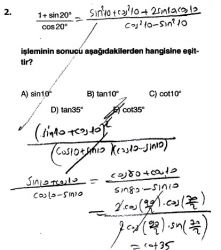 2. 1 + sin20° / cos20° = sin²10 + cos²10 + 2sin10cos10 / cos²10 - sin²10
işleminin sonucu aşağıdakilerden hangisine eşit-
tir?
A) sin10° B) tan10° C) cot10°
D) tan35° E) cot35°
(sin10 + cos10)² / (cos10 + sin10)(cos10 - sin10)
sin10 + cos10 / cos10 - sin10 = cos80 + cos10 / sin80 - sin10
= 2 cos( ) . cos( ) / 2 cos( ) . sin( )
= cot35